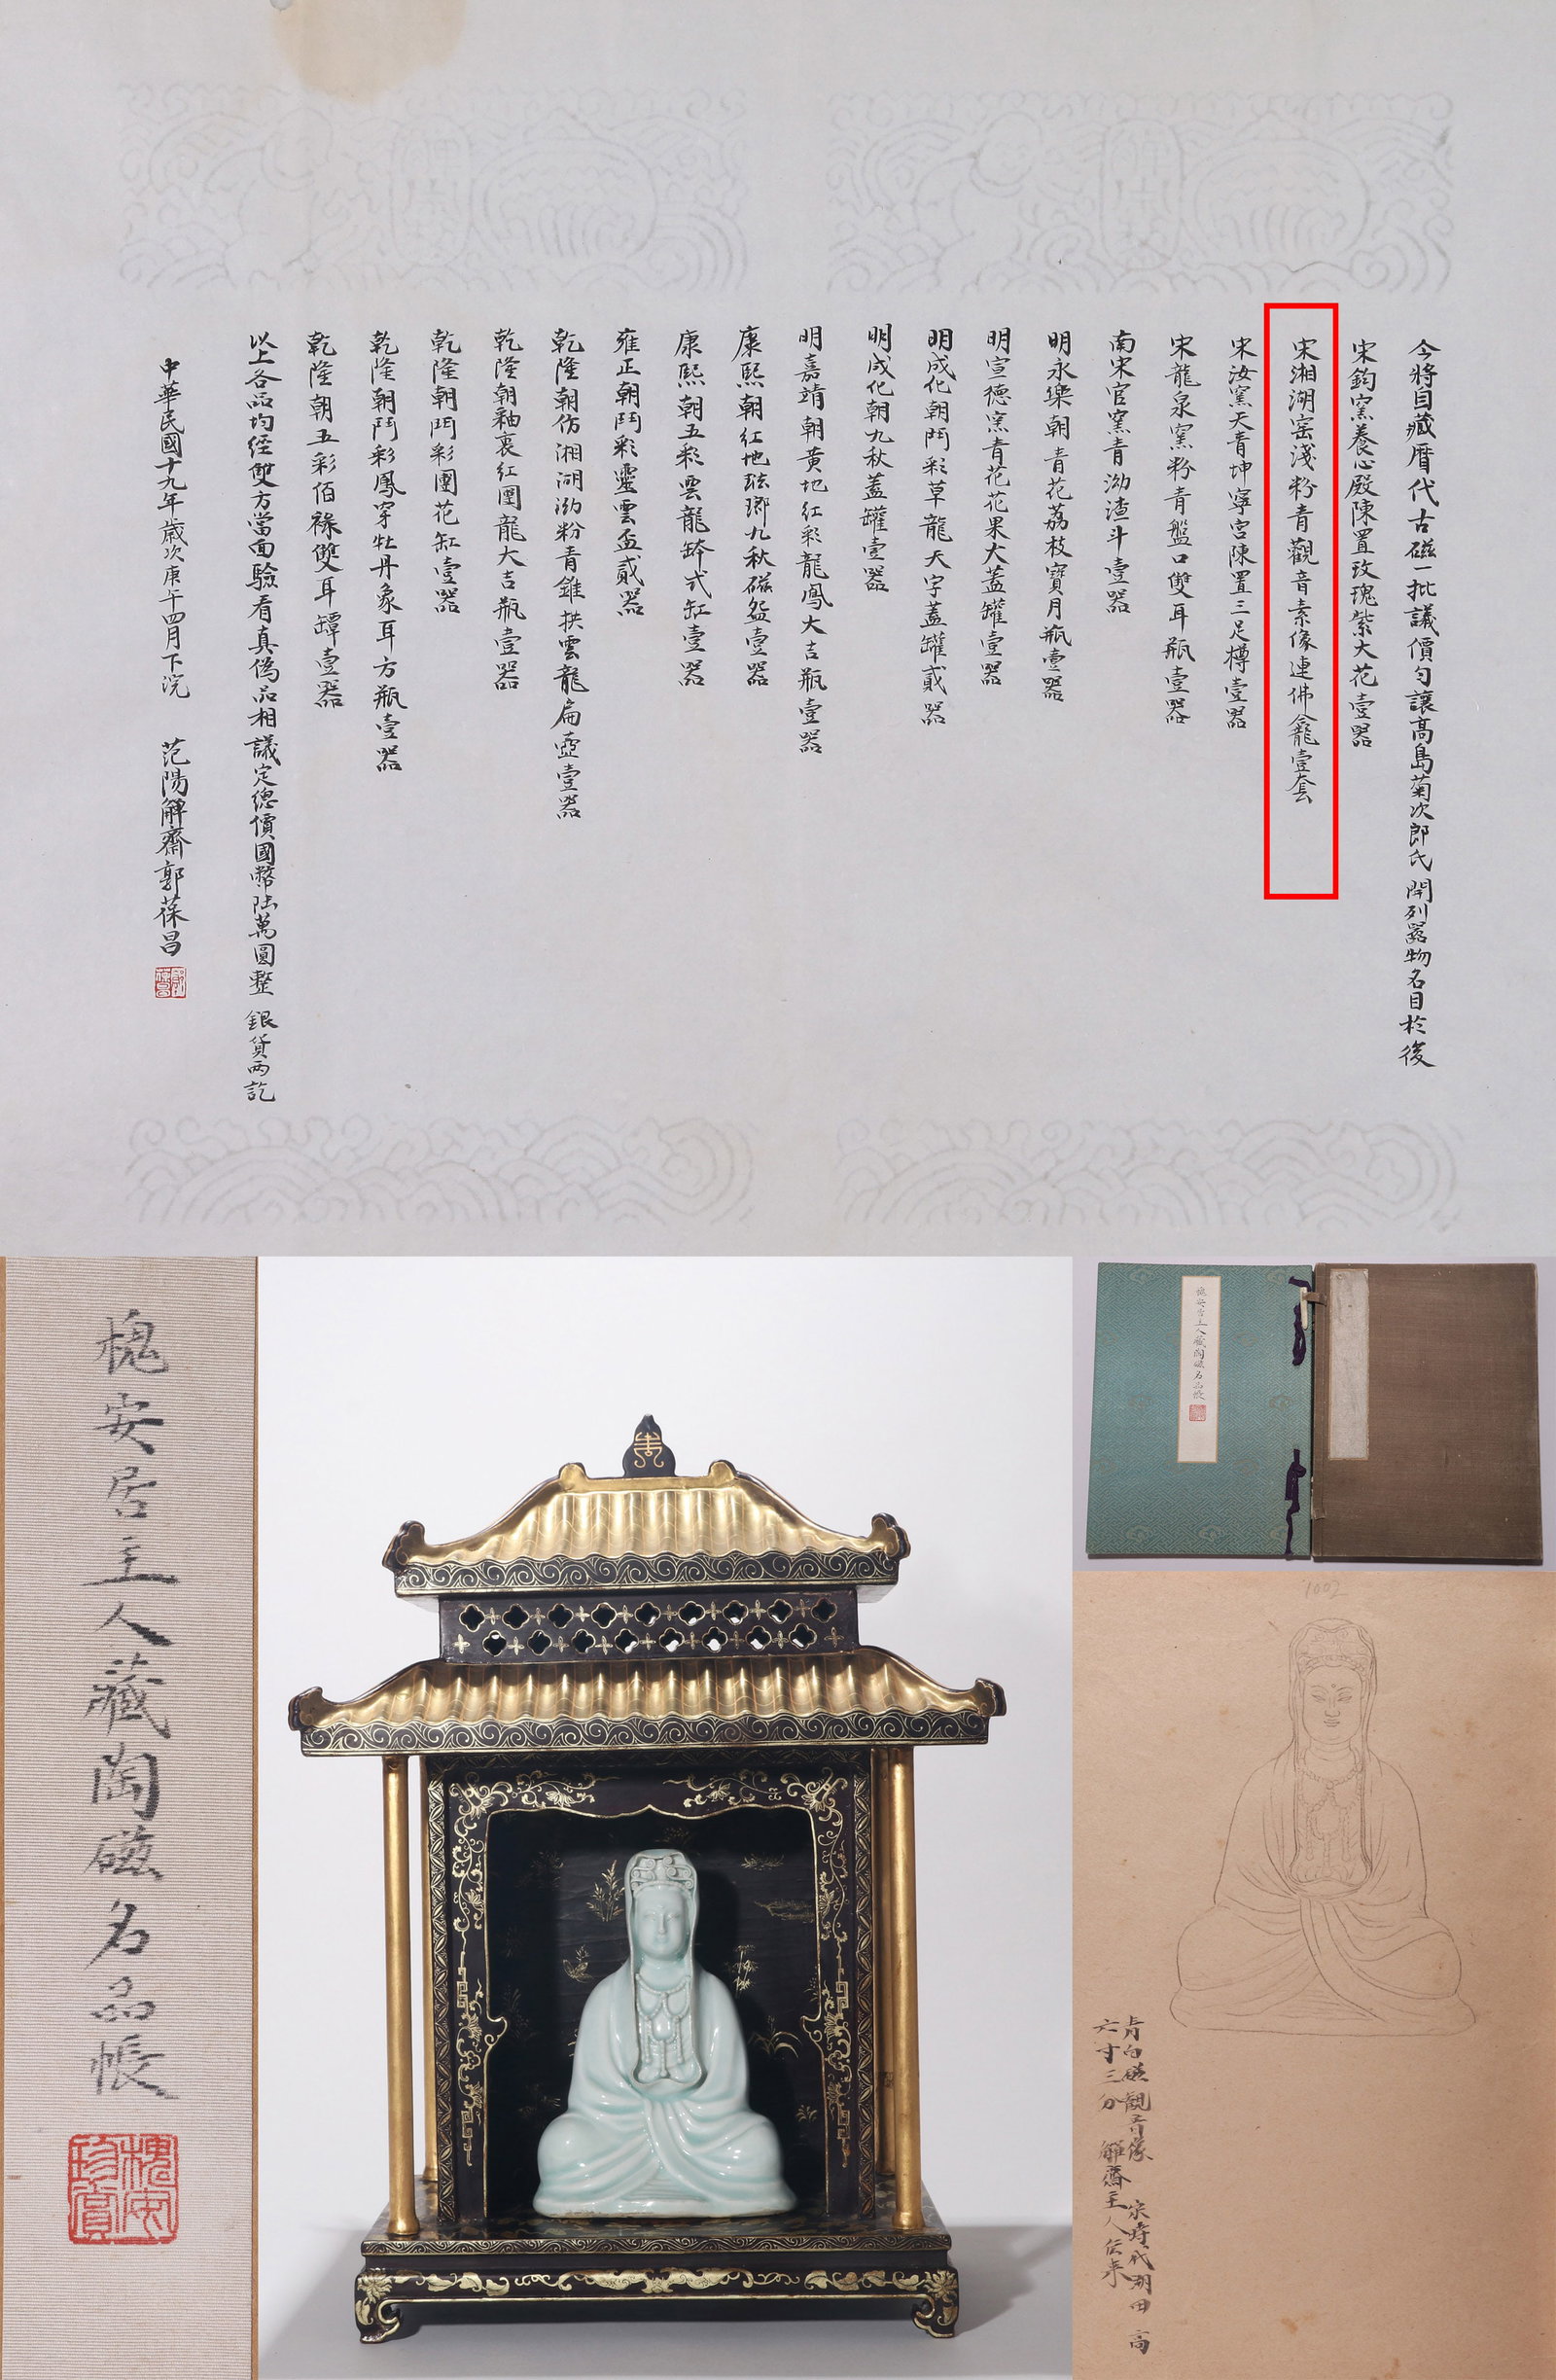 今將自藏曆代古磁一批議價勻讓高島菊次郎氏開列器物名目於後
宋鈞窯養心殿陳置玫瑰紫大花壹器
宋湘湖窑淺粉青觀音素像連佛龕壹套
宋汝窯天青坤寧宮陳置三足樽壹器
宋龍泉窯粉青盤口雙耳瓶壹器
南宋官窯青泑渣斗壹器
明永樂朝青花荔枝寶月瓶壹器
明宣德窯青花花果大蓋罐壹器
明成化朝鬥彩草龍天字蓋罐貳器
明成化朝九秋蓋罐壹器
明嘉靖朝黄地红彩龍鳳大吉瓶壹器
康熙朝红地琺瑯九秋磁盌壹器
康熙朝五彩雲龍缽式缸壹器
雍正朝鬥彩靈雲盃貳器
乾隆朝仿湘湖泑粉青錐拱雲龍扁壺壹器
乾隆朝釉裏红團龍大吉瓶壹器
乾隆朝鬥彩團花缸壹器
乾隆朝鬥彩鳳穿牡丹象耳方瓶壹器
乾隆朝五彩佰祿雙耳罈壹器
以上各品均经雙方當面驗看真僞品相議定總價國幣陆萬圓整 銀貨兩訖
中華民國十九年歲次庚午四月下浣 范陽觶齋郭葆昌
槐安居主人藏陶磁名品帳
槐安珍賞
槐安居主人藏陶磁名品帳
1002
青白磁観音像 宋時代湖田 高
六寸三分 觶齋主人伝来